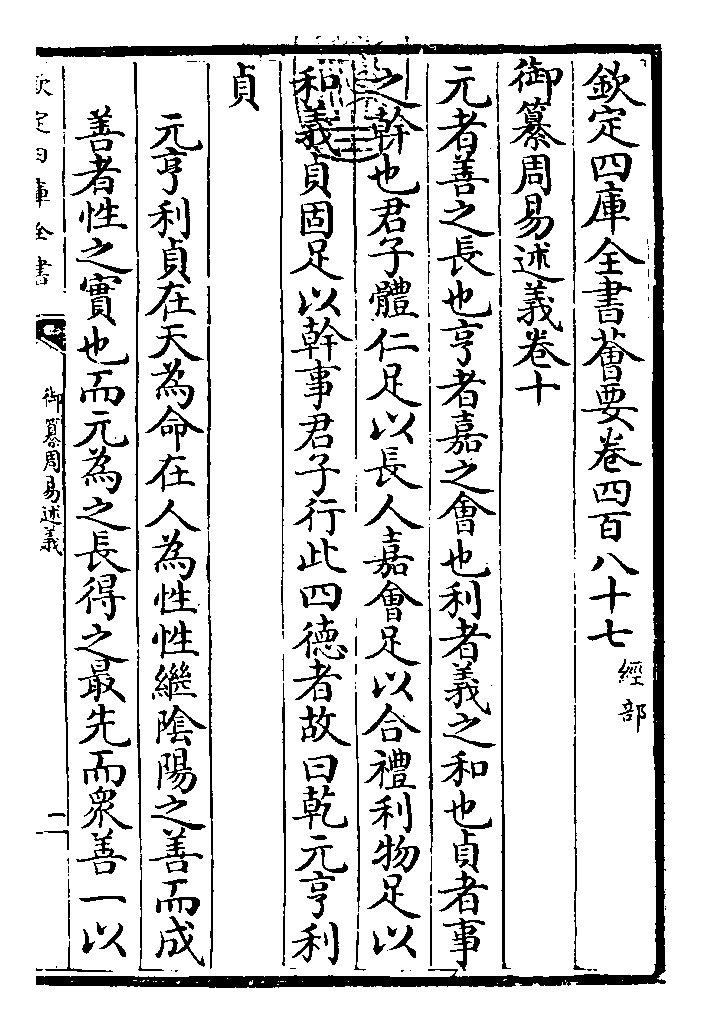 欽定四庫全書薈要卷四百八十七 經部
御纂周易述義卷十
元者善之長也亨者嘉之會也利者義之和也貞者事
之幹也君子體仁足以長人嘉會足以合禮利物足以
和義貞固足以幹事君子行此四德者故曰乾元亨利
貞
元亨利貞在天為命在人為性性繼陰陽之善而成
善者性之實也而元為之長得之最先而衆善一以
欽定四庫全書
御纂周易述義